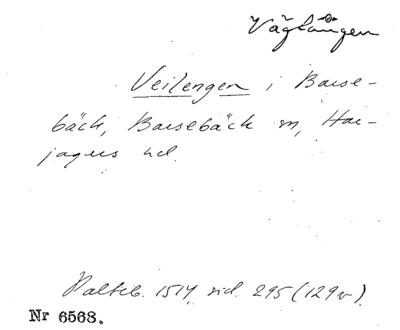 Väglången
Veilengen i Barse-
bäck, Barsebäck sn, Har-
jagers hd.
Palteb. 1514, sid. 295 (129v).
Nr 6568.